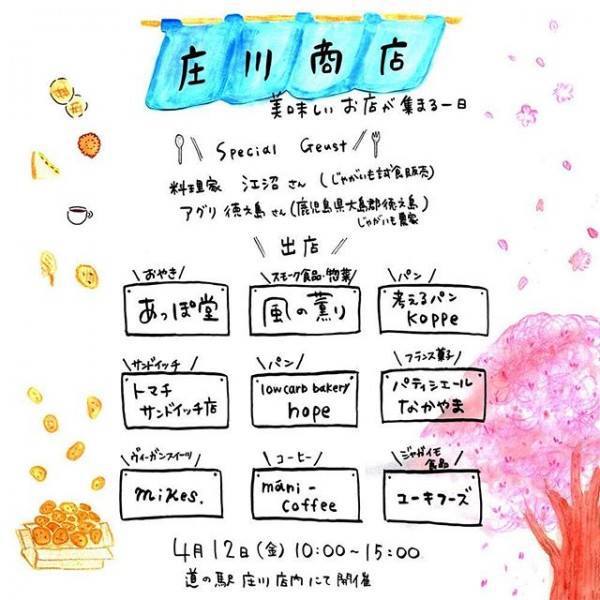 庄川商店
美味しいお店が集まる一日
Special Geust
料理家 江沼さん (じゃがいも試食販売)
アグリ徳之島さん(鹿児島県大島郡徳之島)
じゃがいも農家
出店
おやき
あっぽ堂
スモーク食品・惣菜
風の薫り
パン
考えるパン
KOPPE
サンドイッチ
トマチ
サンドイッチ店
パン
lowcarb bakery
hope
フランス菓子
パティシエール
なかやま
ヴィーガンスイーツ
mikes.
コーヒー
māni-
coffee
ジャガイモ
食品
ユーキフーズ
4月12日(金) 10:00~15:00
道の駅 庄川 店内にて開催